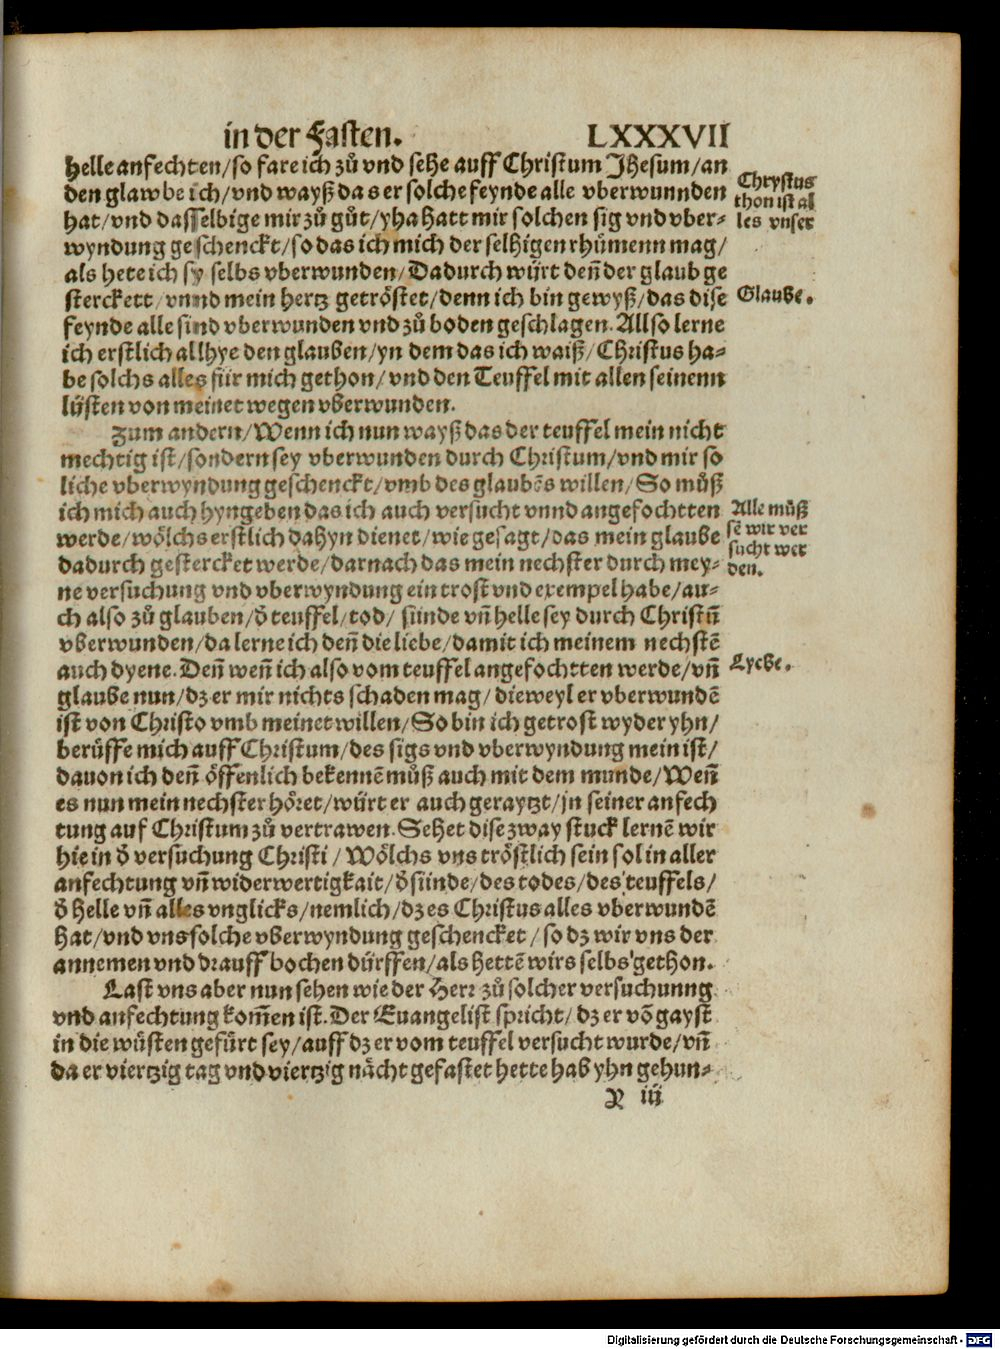 in der Fasten. LXXXVII
helle anfechten/so fare ich zů vnd sehe auff Christum Jhesum/an
den glawbe ich/vnd wayß das er solche feynde alle vberwunnden
hat/vnd dasselbige mir zů gůt/yha hatt mir solchen sig vnd vber-
wyndung geschenckt/so das ich mich der selhigen rhůmenn mag/
als hete ich sy selbs vberwunden/Dadurch würt deñ der glaub ge
sterckett/vnnd mein hertz getröstet/denn ich bin gewyß/das dise
feynde alle sind vberwunden vnd zů boden geschlagen. Allso lerne
ich erstlich allhye den glauben/yn dem das ich waiß/Christus ha-
be solchs alles für mich gethon/vnd den Teuffel mit allen seinenn
lüsten von meinet wegen vberwunden.
Chrystus
thon ist al
les vnser
Glaube.
Zum andern/Wenn ich nun wayß das der teuffel mein nicht
mechtig ist/sondern sey vberwunden durch Christum/vnd mir so
liche vberwyndung geschenckt/vmb des glaubēs willen/So můß
ich mich auch hyngeben das ich auch versucht vnnd angefochtten
werde/wölchs erstlich dahyn dienet/wie gesagt/das mein glaube
dadurch gestercket werde/darnach das mein nechster durch mey-
ne versuchung vnd vberwyndung ein trost vnd exempel habe/au-
ch also zů glauben/ð teuffel/tod/sünde vñ helle sey durch Christū
vberwunden/da lerne ich deñ die liebe/damit ich meinem nechstē
auch dyene. Deñ weñ ich also vom teuffel angefochtten werde/vñ
glaube nun/dz er mir nichts schaden mag/dieweyl er vberwundē
ist von Christo vmb meinet willen/So bin ich getrost wyder yhn/
berüffe mich auff Christum/des sigs vnd vberwyndung mein ist/
dauon ich deñ öffenlich bekennē můß auch mit dem munde/Weñ
es nun mein nechster höret/würt er auch geraytzt/jn seiner anfech
tung auf Christum zů vertrawen. Sehet dise zway stuck lernē wir
hie in ð versuchung Christi/Wölchs vns tröstlich sein sol in aller
anfechtung vñ widerwertigkait/ð sünde/des todes/des teuffels/
ð helle vñ alles vnglicks/nemlich/dz es Christus alles vberwundē
hat/vnd vns solche vberwyndung geschencket/so dz wir vns der
annemen vnd drauff bochen dürffen/als hettē wirs selbs gethon.
Alle můß
sē wir ver
sucht wer
den.
Lyebe.
Last vns aber nun sehen wie der Herr zů solcher versuchunng
vnd anfechtung kom̄en ist. Der Euangelist spricht/dz er vō gayst
in die wüsten gefürt sey/auff dz er vom teuffel versucht wurde/vñ
da er viertzig tag vnd viertzig nächt gefastet hette hab yhn gehun-
P iij
Digitalisierung gefördert durch die Deutsche Forschungsgemeinschaft - DFG